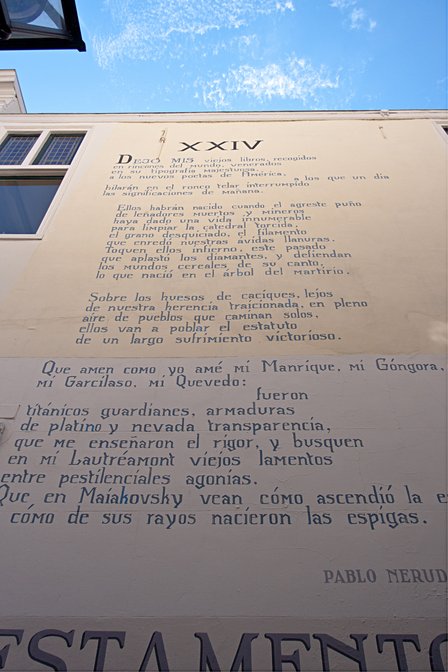 XXIV
DEJO MIS viejos libros, recogidos
en rincones del mundo, venerados
en su tipografía majestuosa,
a los nuevos poetas de América,
a los que un día
hilarán en el ronco telar interrumpido
las significaciones de mañana.
Ellos habrán nacido cuando el agreste puño
de leñadores muertos y mineros
haya dado una vida innumerable
para limpiar la catedral torcida,
el grano desquiciado, el filamento
que enredó nuestras ávidas llanuras.
Toquen ellos infierno, este pasado
que aplastó los diamantes, y defiendan
los mundos cereales de su canto,
lo que nació en el árbol del martirio.
Sobre los huesos de caciques, lejos
de nuestra herencia traicionada, en pleno
aire de pueblos que caminan solos,
ellos van a poblar el estatuto
de un largo sufrimiento victorioso.
Que amen como yo amé mi Manrique, mi Góngora,
mi Garcilaso, mi Quevedo:
fueron
titánicos guardianes, armaduras
de platino y nevada transparencia,
que me enseñaron el rigor, y busquen
en mi Lautréamont viejos lamentos
entre pestilenciales agonías.
Que en Maiakovsky vean cómo ascendió la e
cómo de sus rayos nacieron las espigas.
PABLO NERUD
ESTAMENTO